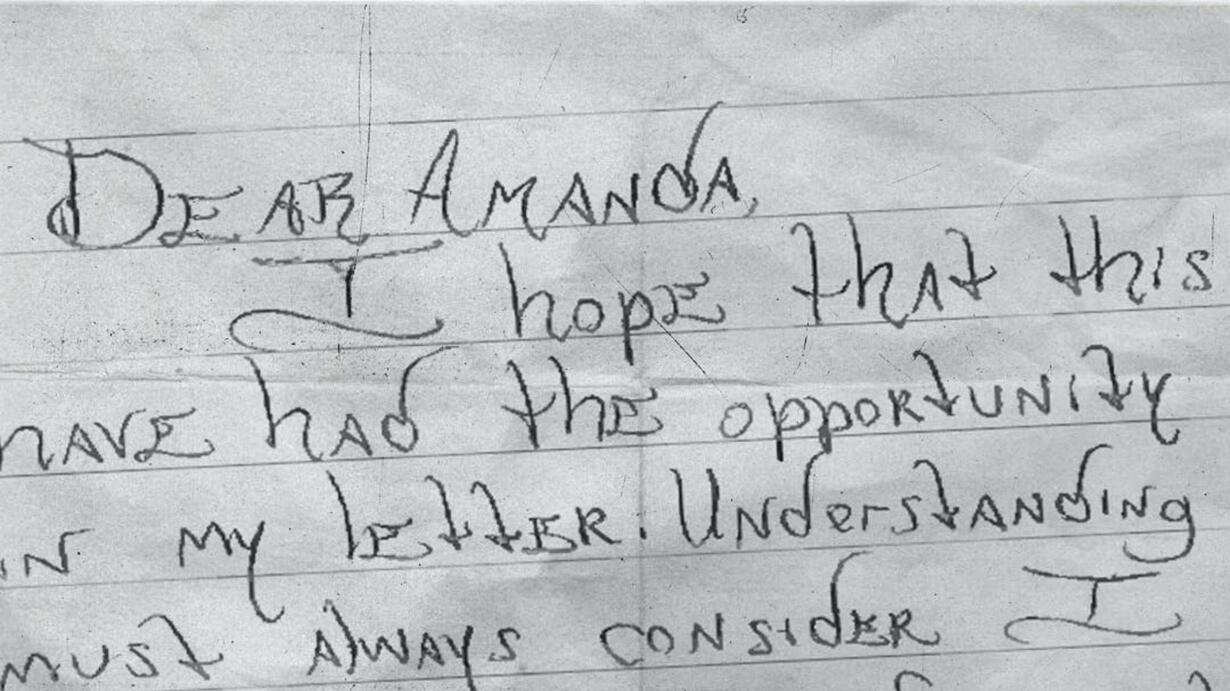 DEAR AMANdA,
I hopE thAt this
hAVE hAd thE oppoRtUNity
iN my lEttER. UNderstANdiNg
must AlwAys coNsidER I